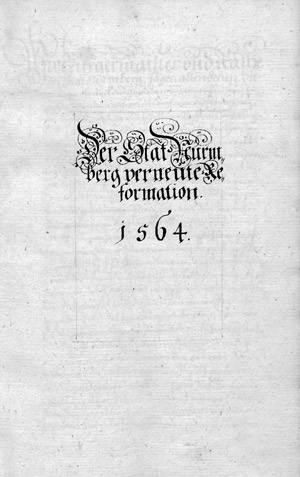 Der Stat Nurm,
berg verneute Re,
formation.
1564.